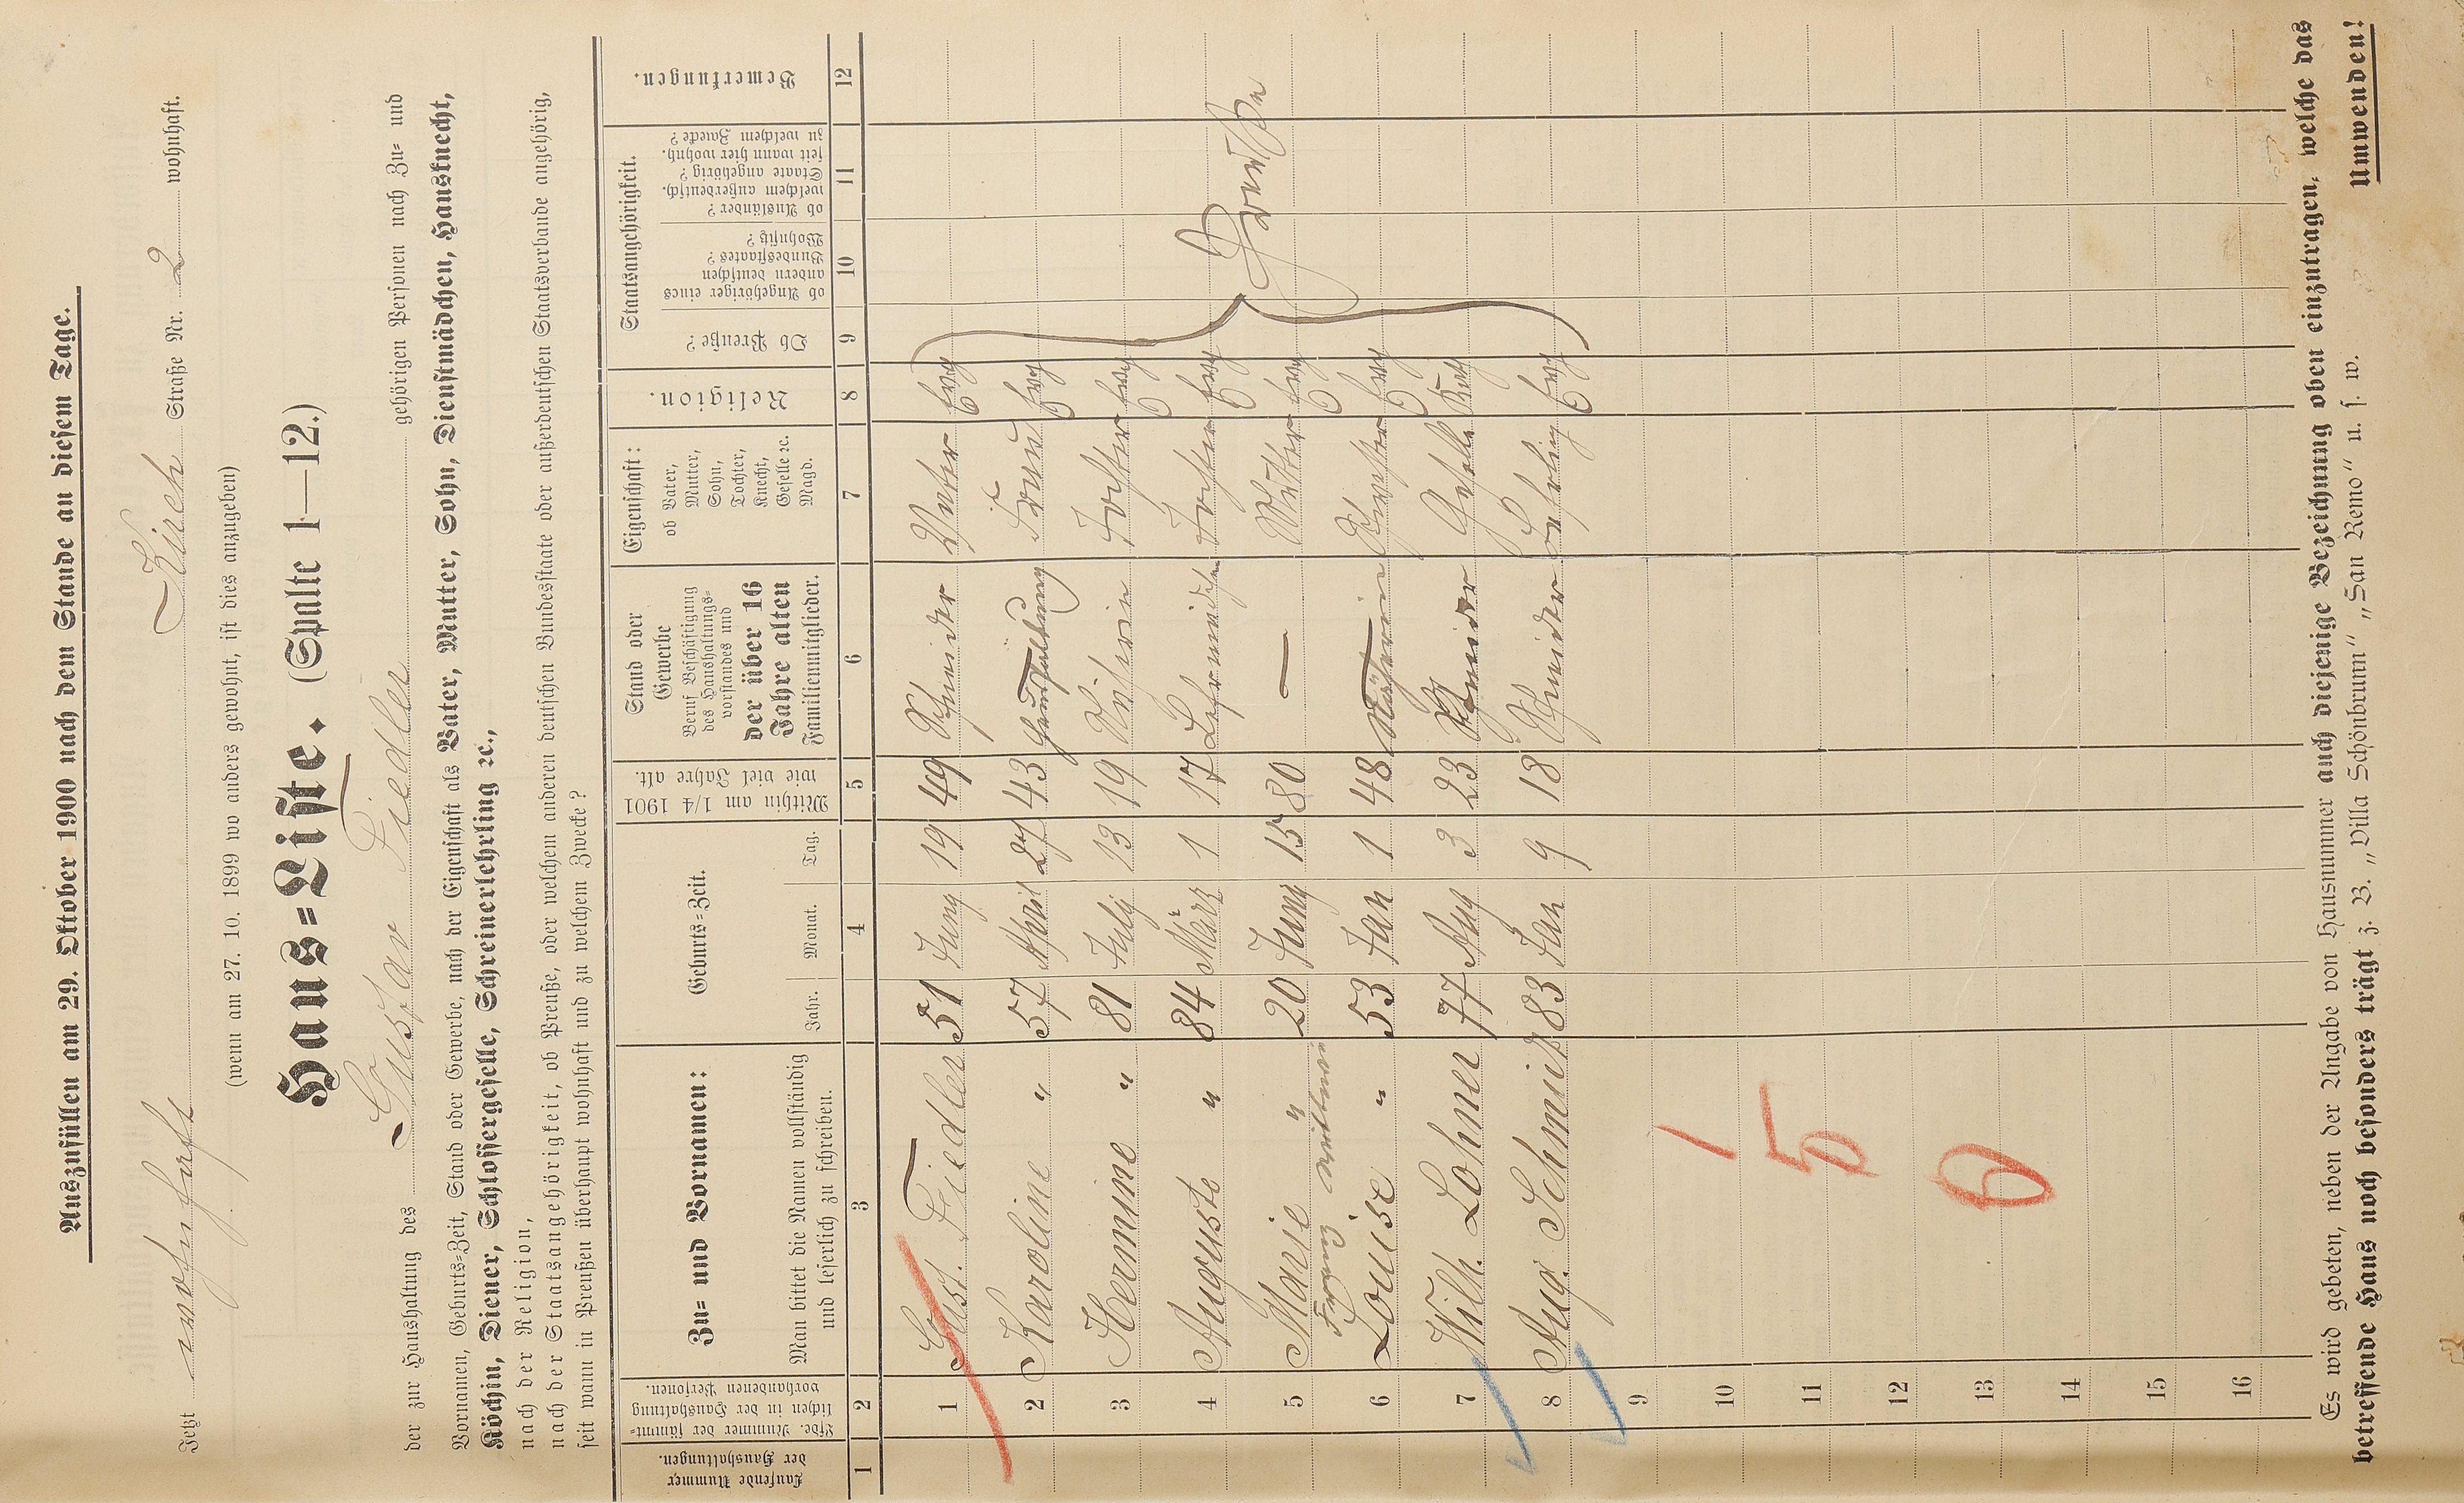 Auszufüllen am 29. Oktober 1900 nach dem Stande an diesem Tage.
Jetzt wohnhaft Kirch Straße Nr. 2 wohnhaft.
(wenn am 27. 10. 1899 wo anders gewohnt, ist dies anzugeben)
Haus=Liste. (Spalte 1—12.)
der zur Haushaltung des Gustav Fiedler gehörigen Personen nach Zu= und
Vornamen, Geburts=Zeit, Stand oder Gewerbe, nach der Eigenschaft als Vater, Mutter, Sohn, Dienstmädchen, Hausknecht,
Köchin, Diener, Schlossergeselle, Schreinerlehrling ꝛc.,
nach der Religion,
nach der Staatsangehörigkeit, ob Preuße, oder welchem anderen deutschen Bundesstaate oder außerdeutschen Staatsverbande angehörig,
seit wann in Preußen überhaupt wohnhaft und zu welchem Zwecke?
Laufende Nummer
der Haushaltungen.
Lfde. Nummer der sämmt=
lichen in der Haushaltung
vorhandenen Personen.
Zu= und Vornamen:
Man bittet die Namen vollständig
und leserlich zu schreiben.
Geburts=Zeit.
Jahr. Monat. Tag.
Mithin am 1/4 1901
wie viel Jahre alt.
Stand oder
Gewerbe
Beruf Beschäftigung
des Haushaltungs=
vorstandes und
der über 16
Jahre alten
Familienmitglieder.
Eigenschaft:
ob Vater,
Mutter,
Sohn,
Tochter,
Knecht,
Geselle ꝛc.
Magd.
Religion.
Staatsangehörigkeit.
Ob Preuße?
ob Angehöriger eines
andern deutschen
Bundesstaates?
Wohnsitz?
ob Ausländer?
welchem außerdeutsch.
Staate angehörig?
seit wann hier wohnh.
zu welchem Zwecke?
Bemerkungen.
1 2 3 4 5 6 7 8 9 10 11 12
1 Gust. Fiedler 51 Juny 19 49 Schneider Vater Evg
2 Karoline " 57 April 27 43 Haushaltung Frau Evg
3 Hermine " 81 July 13 19 Näherin Tochter Evg
4 Auguste " 84 März 1 17 Lehrmädchen Tochter Evg
5 Marie " 20 Juny 15 80 — Mutter Evg
Franz Wittwe
6 Louise " 53 Jan 1 48 Näherin Schwester Evg
7 Wilh. Lohmer 77 Aug 3 23 Schneider Geselle Kath
8 Aug. Schmidt 83 Jan 9 18 Schneider Lehrling Evg
Preuße
9
10 1
11 5
12
13 6
14
15
16
Es wird gebeten, neben der Angabe von Hausnummer auch diejenige Bezeichnung oben einzutragen, welche das
betreffende Haus noch besonders trägt z. B. „Villa Schönbrunn“ „San Remo“ u. s. w.
Umwenden!